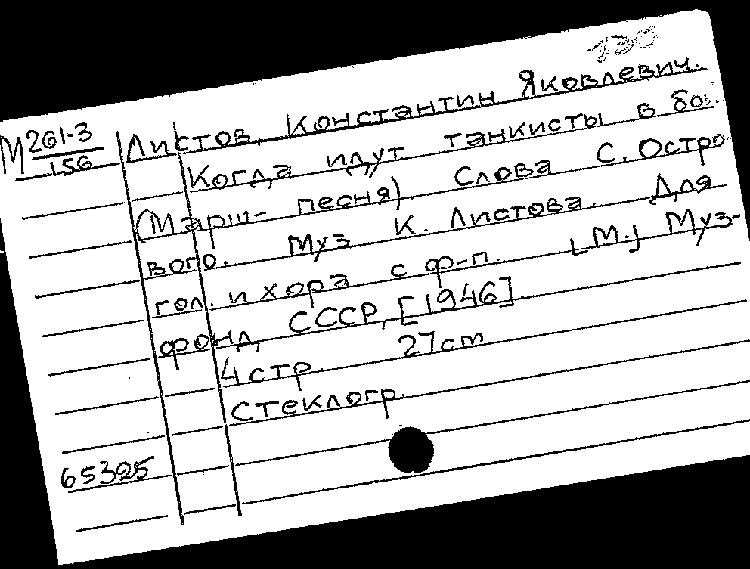 130
М 261-3
156
Листов, Константин Яковлевич.
Когда идут танкисты в бой.
(Марш-песня). Слова С. Остро
вого. Муз К. Листова. Для
гол. и хора с ф-п. [М.] Муз-
фонд СССР, [1946].
4 стр. 27 cm
Стеклогр.
65325